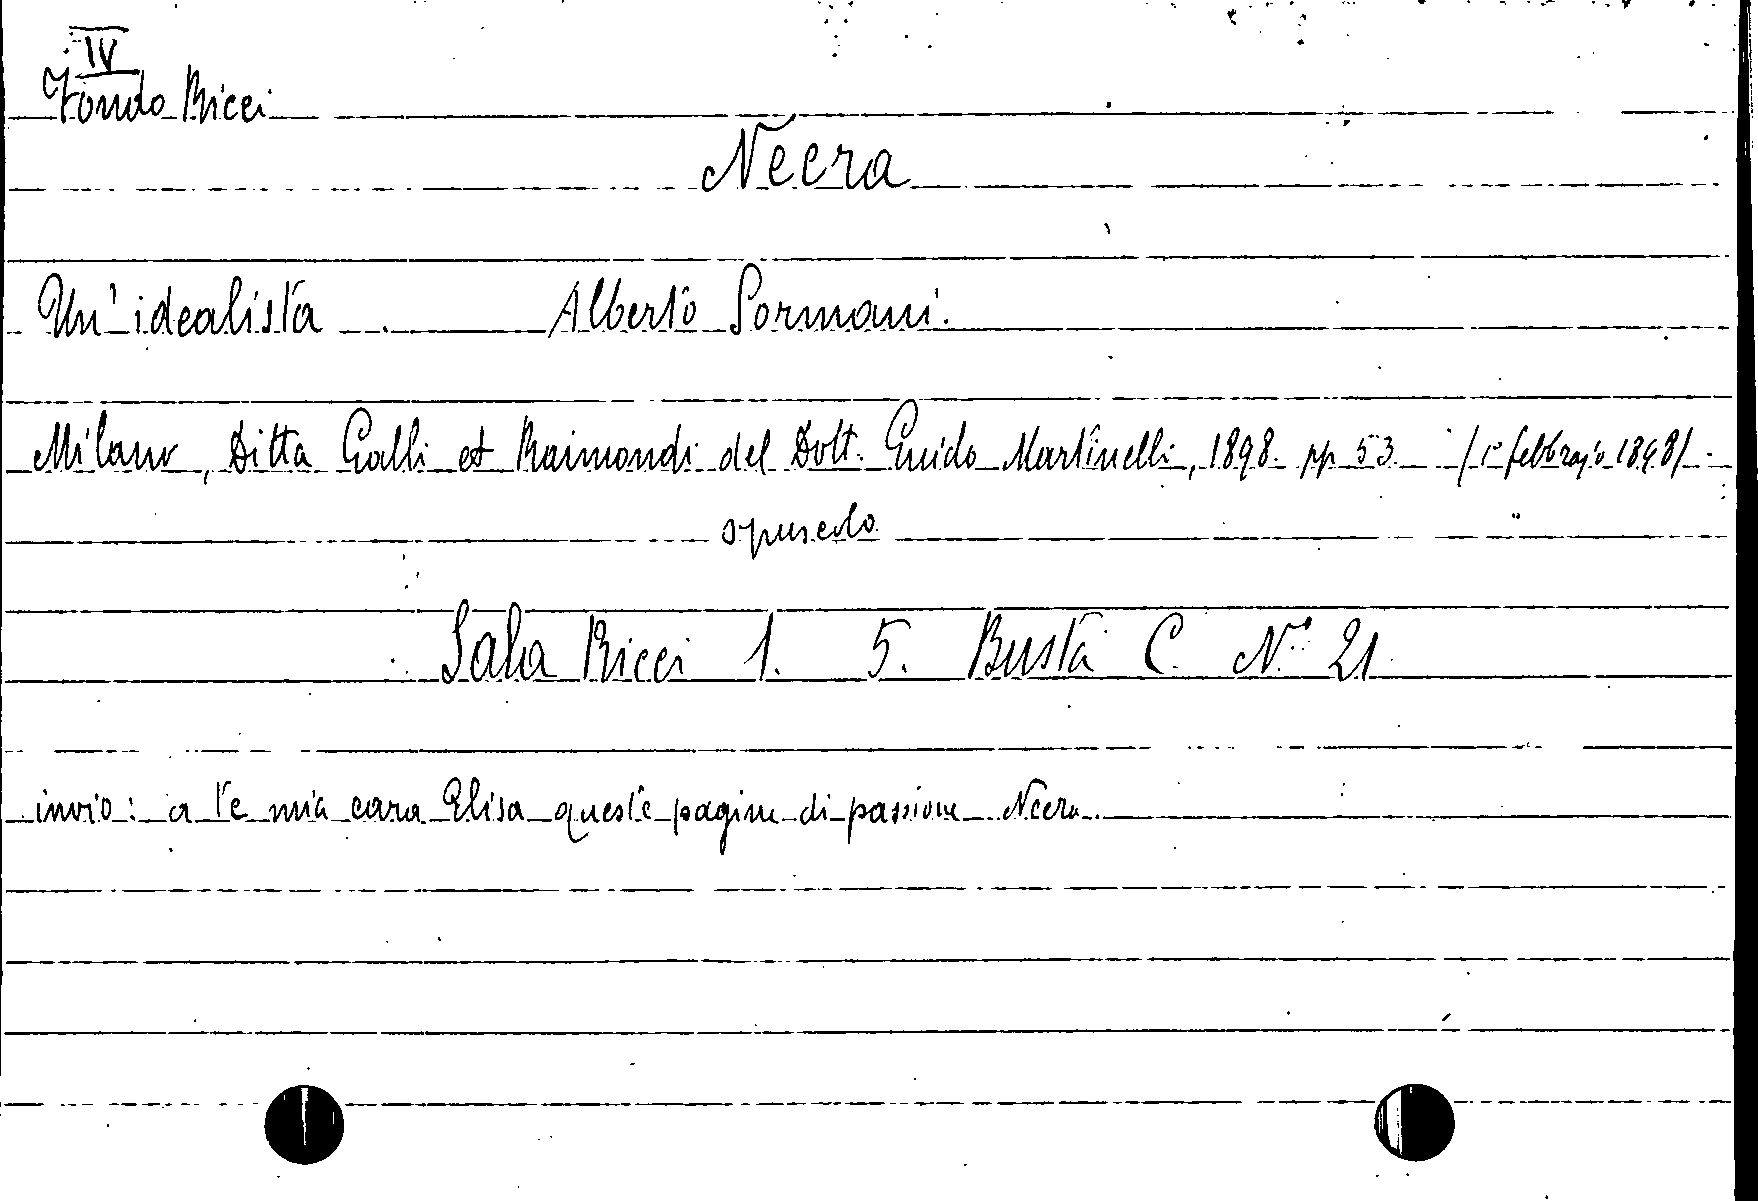 IV
Fondo Ricci
Neera
Un' idealista. Alberto Sormani.
Milano, Ditta Galli et Raimondi del Dott. Guido Martinelli, 1898. pp 53 /1° febbrajo 1898/.
opuscolo
Sala Ricci 1. 5. Busta C. N° 21
invio: a te mia cara Elisa queste pagine di passione Neera.